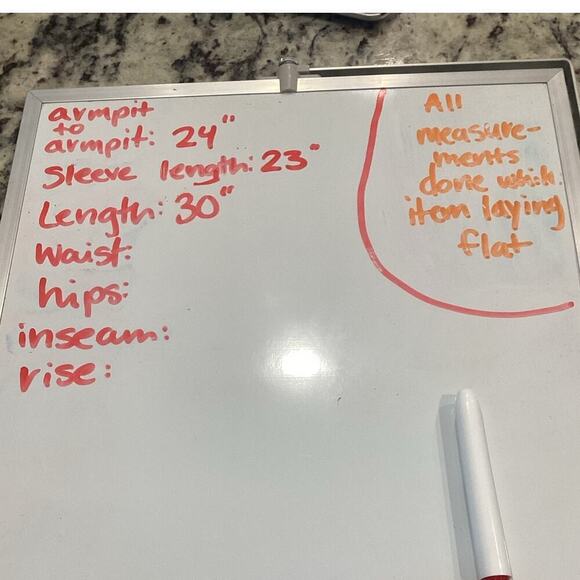 armpit
to
armpit: 24"
Sleeve length: 23"
Length: 30"
Waist:
hips:
inseam:
rise:
All
measure-
ments
done which
item laying
flat